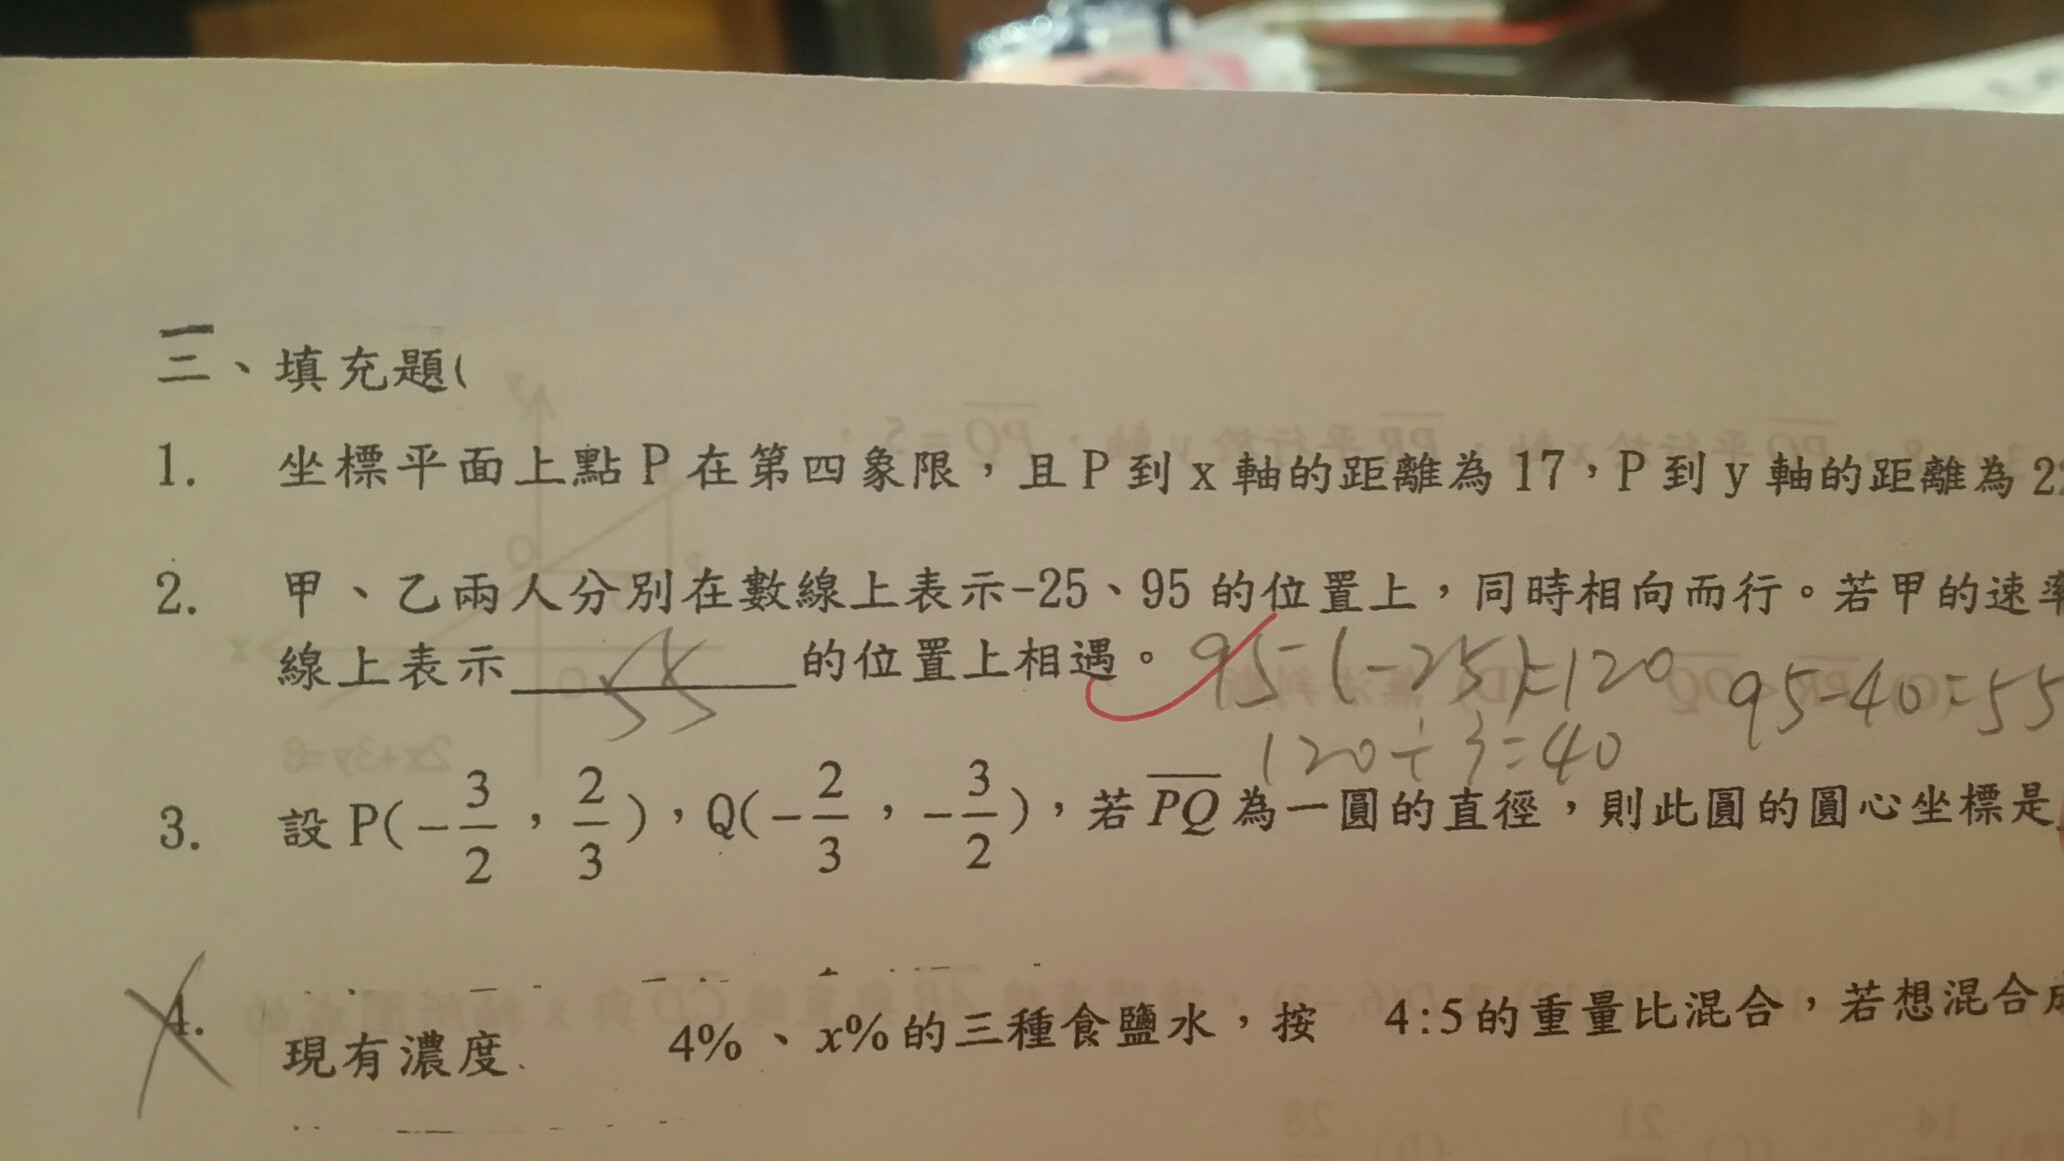 三、填充題(
1. 坐標平面上點P在第四象限，且P到x軸的距離為17，P到y軸的距離為22
2. 甲、乙兩人分別在數線上表示-25、95的位置上，同時相向而行。若甲的速率
線上表示 55 的位置上相遇。 95-(-25)=120 95-40=55
120÷3=40
3. 設P(-3/2，2/3)，Q(-2/3，-3/2)，若PQ為一圓的直徑，則此圓的圓心坐標是
4. 現有濃度 4%、x%的三種食鹽水，按 4:5的重量比混合，若想混合成